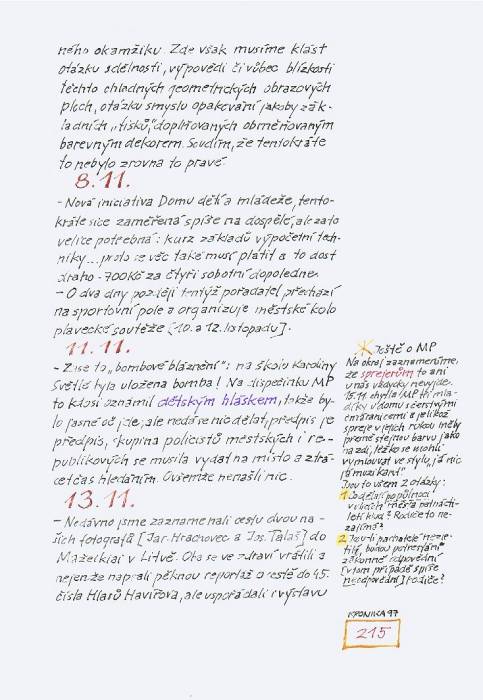 ného okamžiku. Zde však musíme klást
otázku sdělnosti, výpovědi či vůbec blízkosti
těchto chladných geometrických obrazových
ploch, otázku smyslu opakování jakoby zák-
ladních „tisků", doplňovaných obměňovaným
barevným dekorem. Soudím, že tentokráte
to nebylo zrovna to pravé
8.11.
- Nová iniciativa Domu dětí a mládeže, tento-
kráte sice zaměřená spíše na dospělé, ale zato
velice potřebná: kurz základů výpočetní tech-
niky... proto se věc také musí platit a to dost
draho - 700Kč za čtyři sobotní dopoledne.
- O dva dny později tentýž pořadatel přechází
na sportovní pole a organizuje městské kolo
plavecké soutěže [10. a 12. listopadu].
11.11.
- Zase to „bombové bláznění": na školu Karoliny
Světlé byla uložena bomba! Na dispečinku MP
to kdosi oznámil dětským hláskem, takže by-
lo jasné oč jde, ale nedá se nic dělat, předpis je
předpis, skupina policistů městských i re-
publikových se musila vydat na místo a ztrá-
cet čas hledáním. Ovšemže nenašli nic.
13.11.
- Nedávno jsme zaznamenali cestu dvou na-
šich fotografů [Jar. Hrachovec a Jos. Talaš] do
Mažeikiai v Litvě. Oba se ve zdraví vrátili a
nejenže napsali pěknou reportáž o cestě do 45.
čísla Hlasů Havířova, ale uspořádali i výstavu
Ještě o MP
Na okraj zaznamenáme,
že sprejerům to ani
u nás vždycky nevyjde.
15.11. chytla MP tři mla-
díky u domu s čerstvými
čmáranicemi a jelikož
spreje v jejich rukou měly
přeně stejnou barvu jako
na zdi, těžko se mohli
vymlouvat ve stylu „já nic
já muzikant".
Jsou to všem 2 otázky:
1. Co dělají po půlnoci
v ulicích města patnácti-
letí kluci? Rodiče to ne-
zajímá?
2. Jsou-li pachatelé nezle-
tilí, budou potrestáni
zákonně odpovědní
[v tom případě spíše
neodpovědní] rodiče?
KRONIKA 97
215